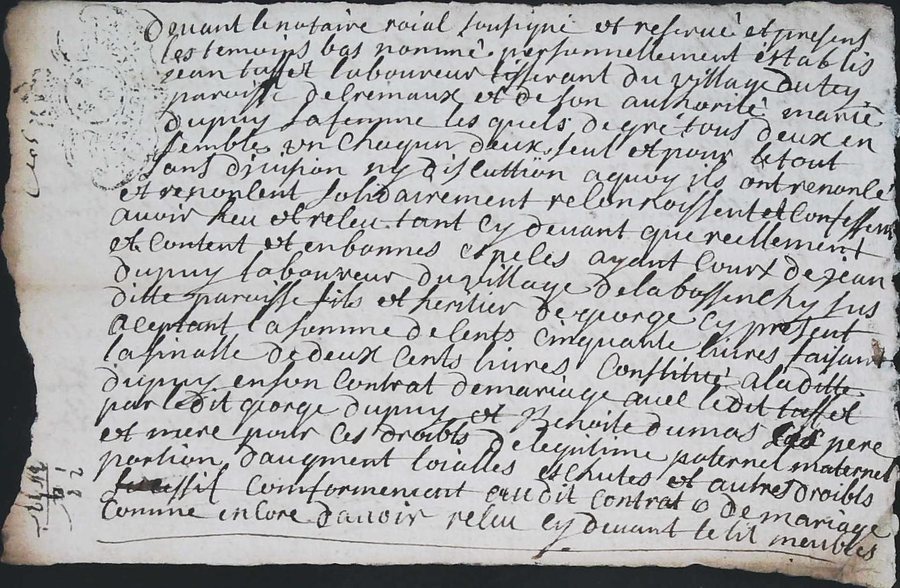 devant le notaire roial soussigné et reservé et presens
les temoins bas nommé personnellement establis
jean taffet laboureur tisserant du village dutey
paroisse de Cremaux et de son authorité marie
dupuy sa femme les quels de gré tous deux en
semble un Chaqun deux seul et pour le tout
sans division ny discution aquoy ils ont renoncé
et renoncent solidairement reconnoissent et Confessent
avoir heu et receu tant cy devant que reellement
et content et en bonnes espeses ayant Court de jean
dupuy laboureur du village de la
ditte paroisse fils et heritier de george cy present
aceptant la somme de Cents Cinquante livres faisant
la finalle de deux Cents livres Constitué a la ditte
dupuy en son Contrat de mariage avec le dit taffet
par ledit george dupuy et Benoite dumas pere
et mere pour ces droibts de legitime paternel maternel
portion d'augment loialles et chutes et autres droibts
Conformement audit Contrat de mariage
Comme encore davoir receu cy devant le lit meubles